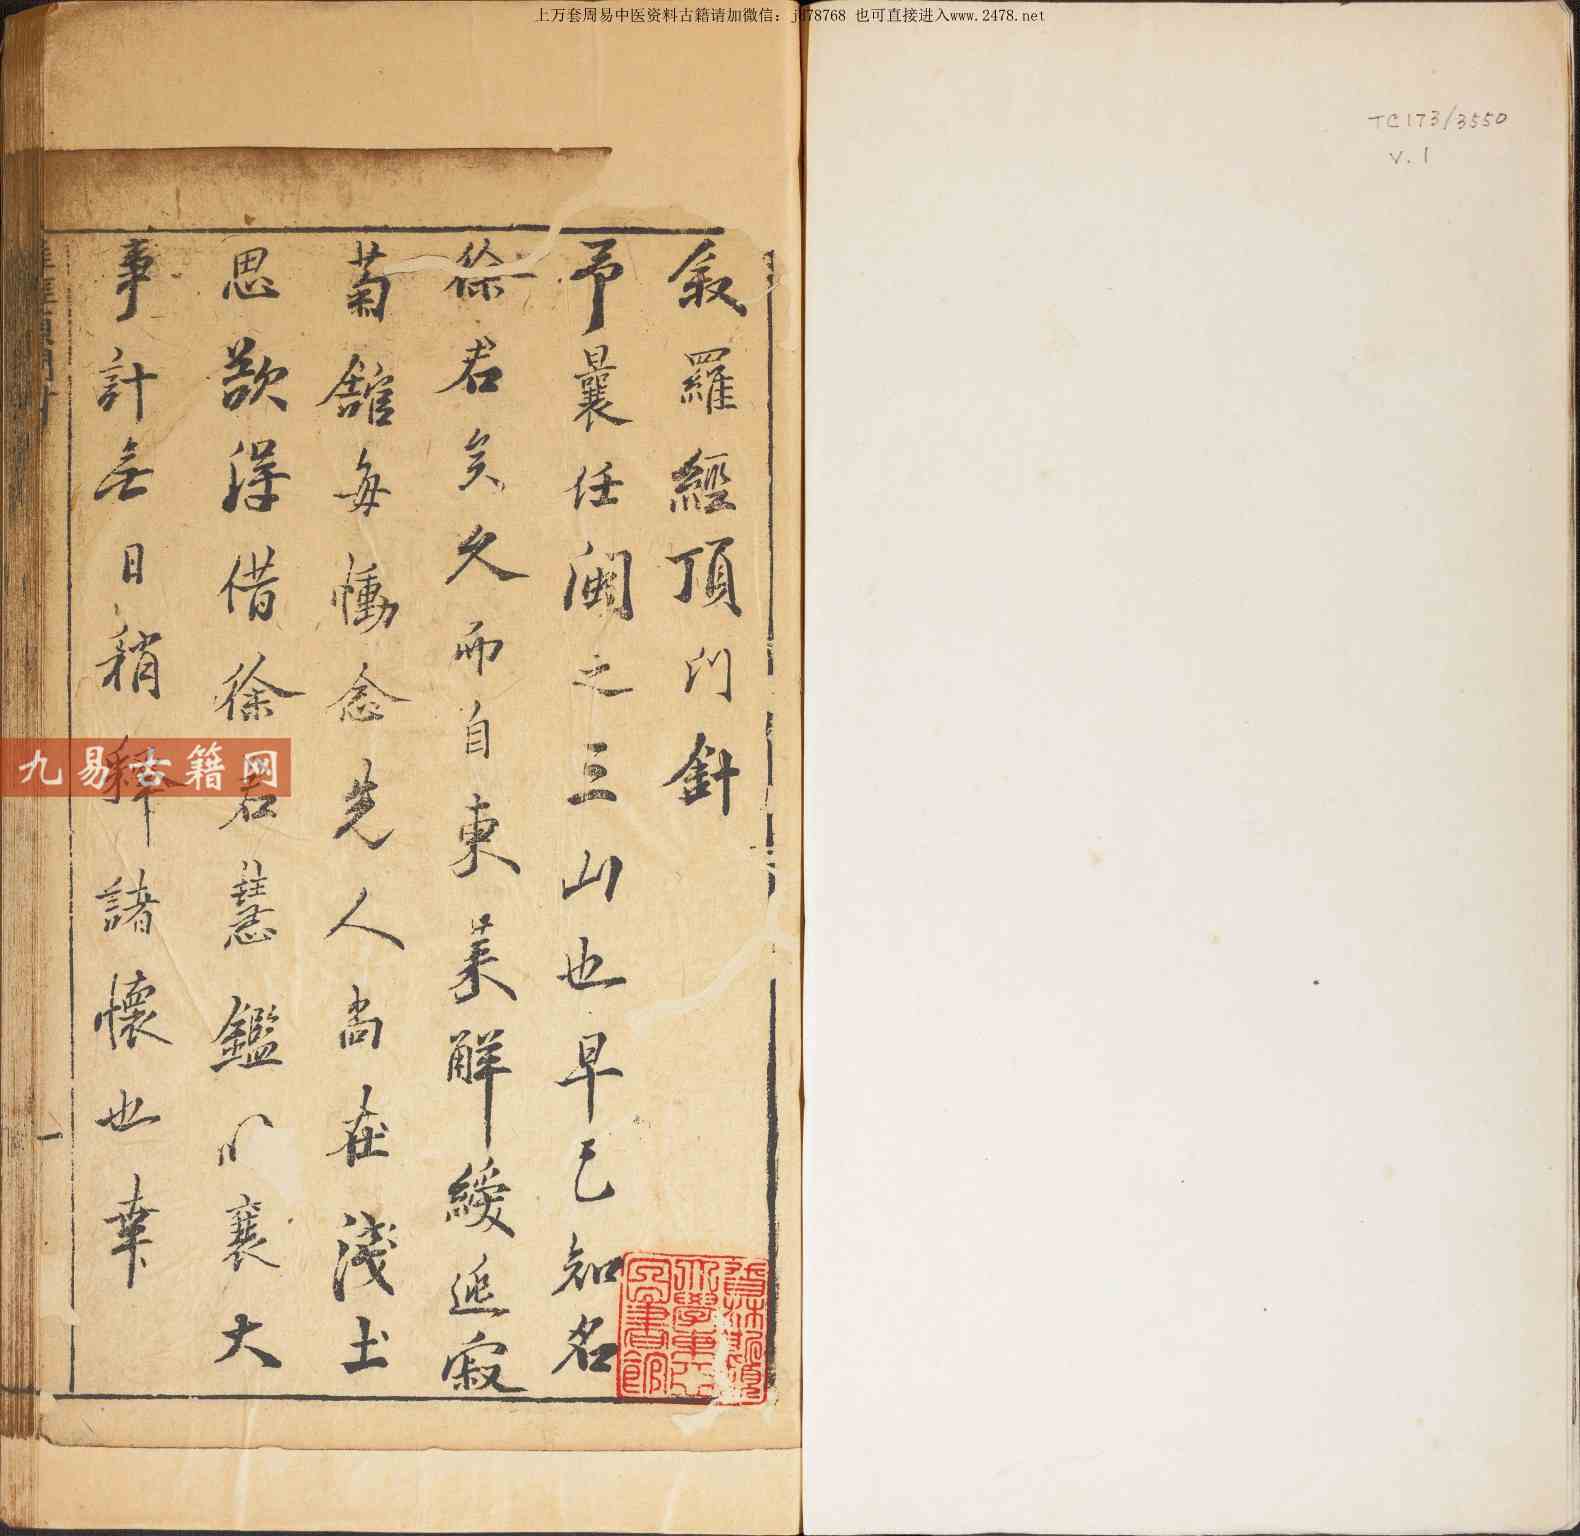 上万套周易中医资料古籍请加微信：jd78768 也可直接进入www.2478.net
TC173/3550
v.1
叙羅經頂門針
予曩任閩之三山也早已知名
徐君矣久而自東萊解綬逃寂
菊舘每慟念先人尚在淺土
思欲得借徐君慧鑑以襄大
事計無日稍釋諸懷也幸
一
九易古籍网